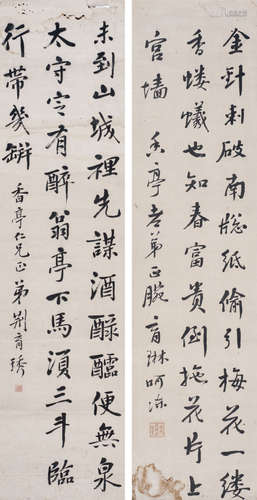 金針刺破南窓紙偷引梅花一縷
香蝼蟻也知春富貴倒拖花片上
宮墻 香亭老弟正腕 育琳呵凍
未到山城裡先謀酒醁醽便無泉
太守它有醉翁亭下馬須三斗臨
行帶幾缾 香亭仁兄正 弟荆育琇